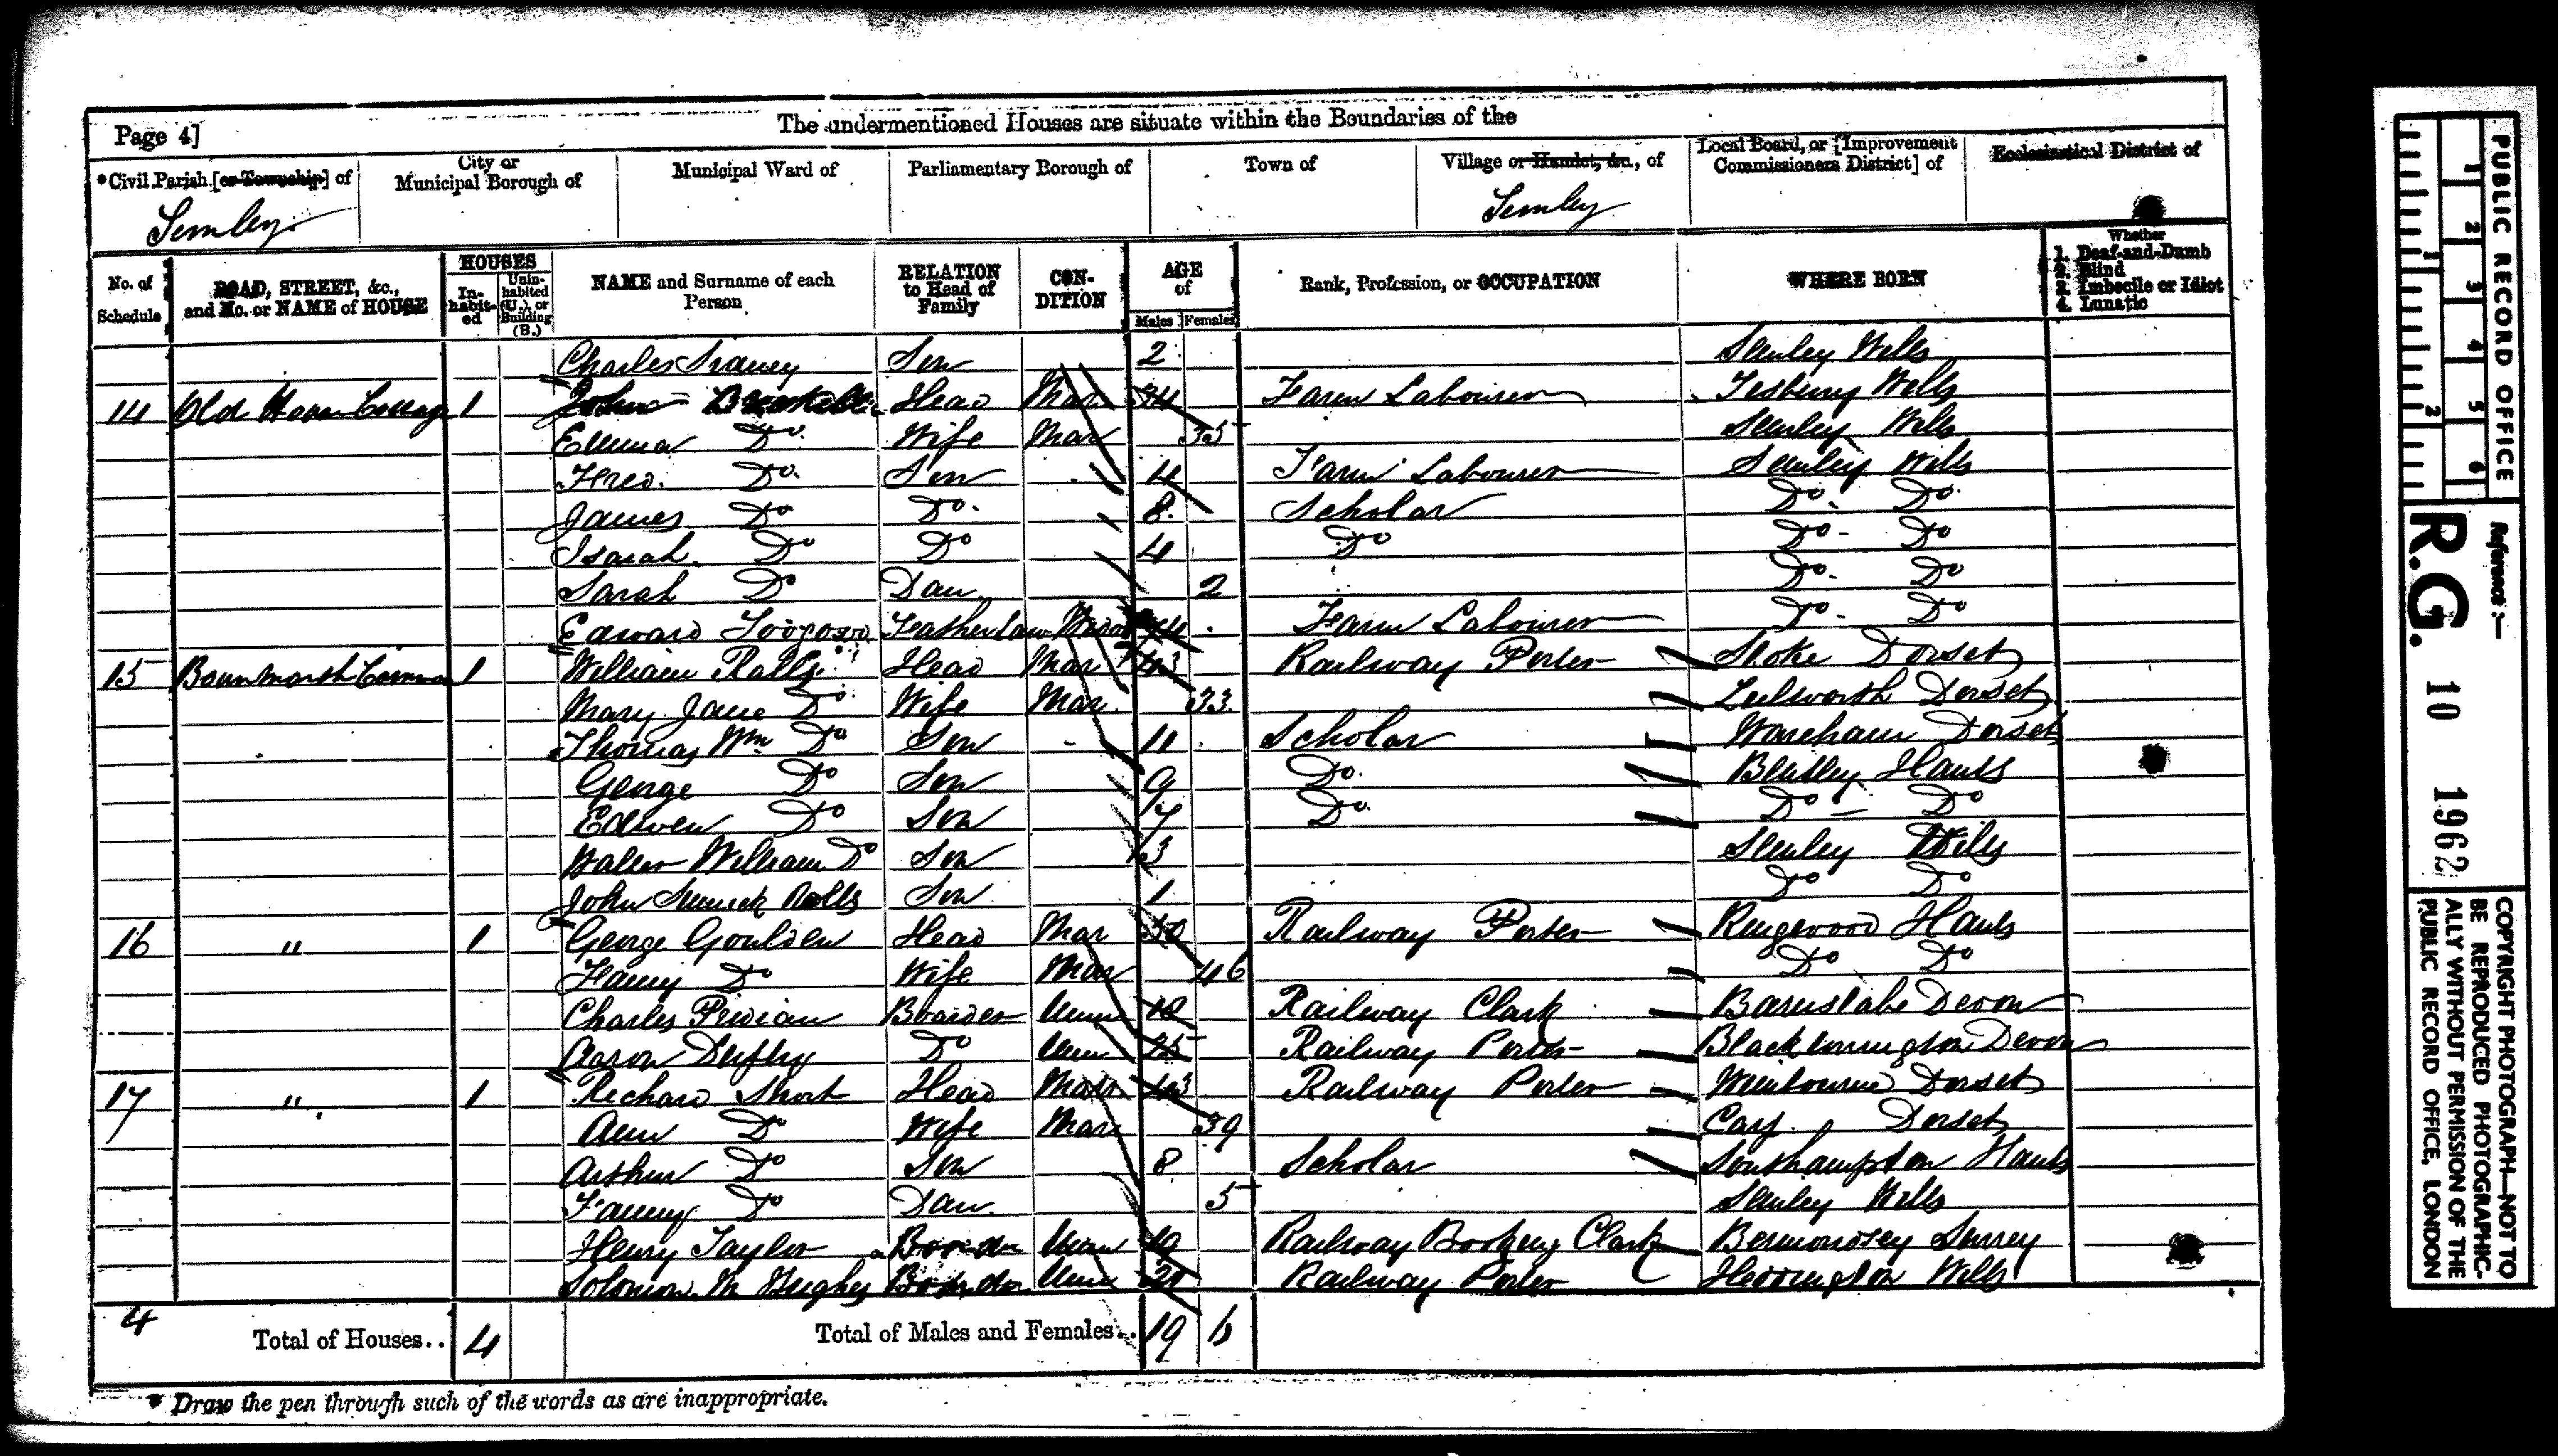 Page 4]
The undermentioned Houses are situate within the Boundaries of the
*Civil Parish [or Township] of
City or Municipal Borough of
Municipal Ward of
Parliamentary Borough of
Town of
Village or Hamlet, &c., of
Local Board, or [Improvement Commissioners District] of
Ecclesiastical District of
Semley
Semley
No. of Schedule
ROAD, STREET, &c., and No. or NAME of HOUSE
HOUSES
In-habit-ed
Unin-habited (U.), or Building (B.)
NAME and Surname of each Person
RELATION to Head of Family
CON-DITION
AGE of
Males
Females
Rank, Profession, or OCCUPATION
WHERE BORN
Whether
1. Deaf-and-Dumb
2. Blind
3. Imbecile or Idiot
4. Lunatic
Charles Sidney Son 2 Semley Wilts
14 Old 1 John Head Mar 34 Farm Labourer Tisbury Wilts
Emma Do Wife Mar 35 Semley Wilts
Fred. Do. Son Farm Labourer Semley Wilts
James Do Do. 8 Scholar Do. Do.
Do Do 4 Do Do. Do
Sarah Do Dau 2 Do. Do
Edward Father Law Farm Labourer Do. Do
15 1 William Ralls Head Mar 43 Railway Porter Stoke Dorset
Mary Jane Do Wife Mar 33 Lulworth Dorset
Thomas Wm Do Son 11 Scholar Wareham Dorset
George Do Son 9 Do. Hants
Edwen Do Son 7 Do. Do. Do
Walter William Do Son 3 Semley Wilts
John Ralls Son 1 Do Do
16 " 1 George Goulden Head Mar 50 Railway Porter Ringwood Hants
Fanny Do Wife Mar 46 Do Do
Charles Boarder Unm Railway Clark Barnstabe Devon
Aaron Do Unm 25 Railway Porter Black Devon
17 " 1 Richard Short Head Mar 43 Railway Porter Wimbourne Dorset
Ann Do Wife Mar 39 Dorset
Arthur Do Son 8 Scholar Southampton Hants
Fanny Do Dau. 5 Semley Wilts
Henry Taylor Boarder Unm 19 Railway Booking Clark Bermondsey Surrey
Solomon Hughes Boarder Unm 21 Railway Porter Wilts
4 Total of Houses.. 4 Total of Males and Females.. 19 6
* Draw the pen through such of the words as are inappropriate.
PUBLIC RECORD OFFICE
1 2 3 4 5 6
1 2
Reference :—
R.G. 10 1962
COPYRIGHT PHOTOGRAPH—NOT TO
BE REPRODUCED PHOTOGRAPHIC-
ALLY WITHOUT PERMISSION OF THE
PUBLIC RECORD OFFICE, LONDON